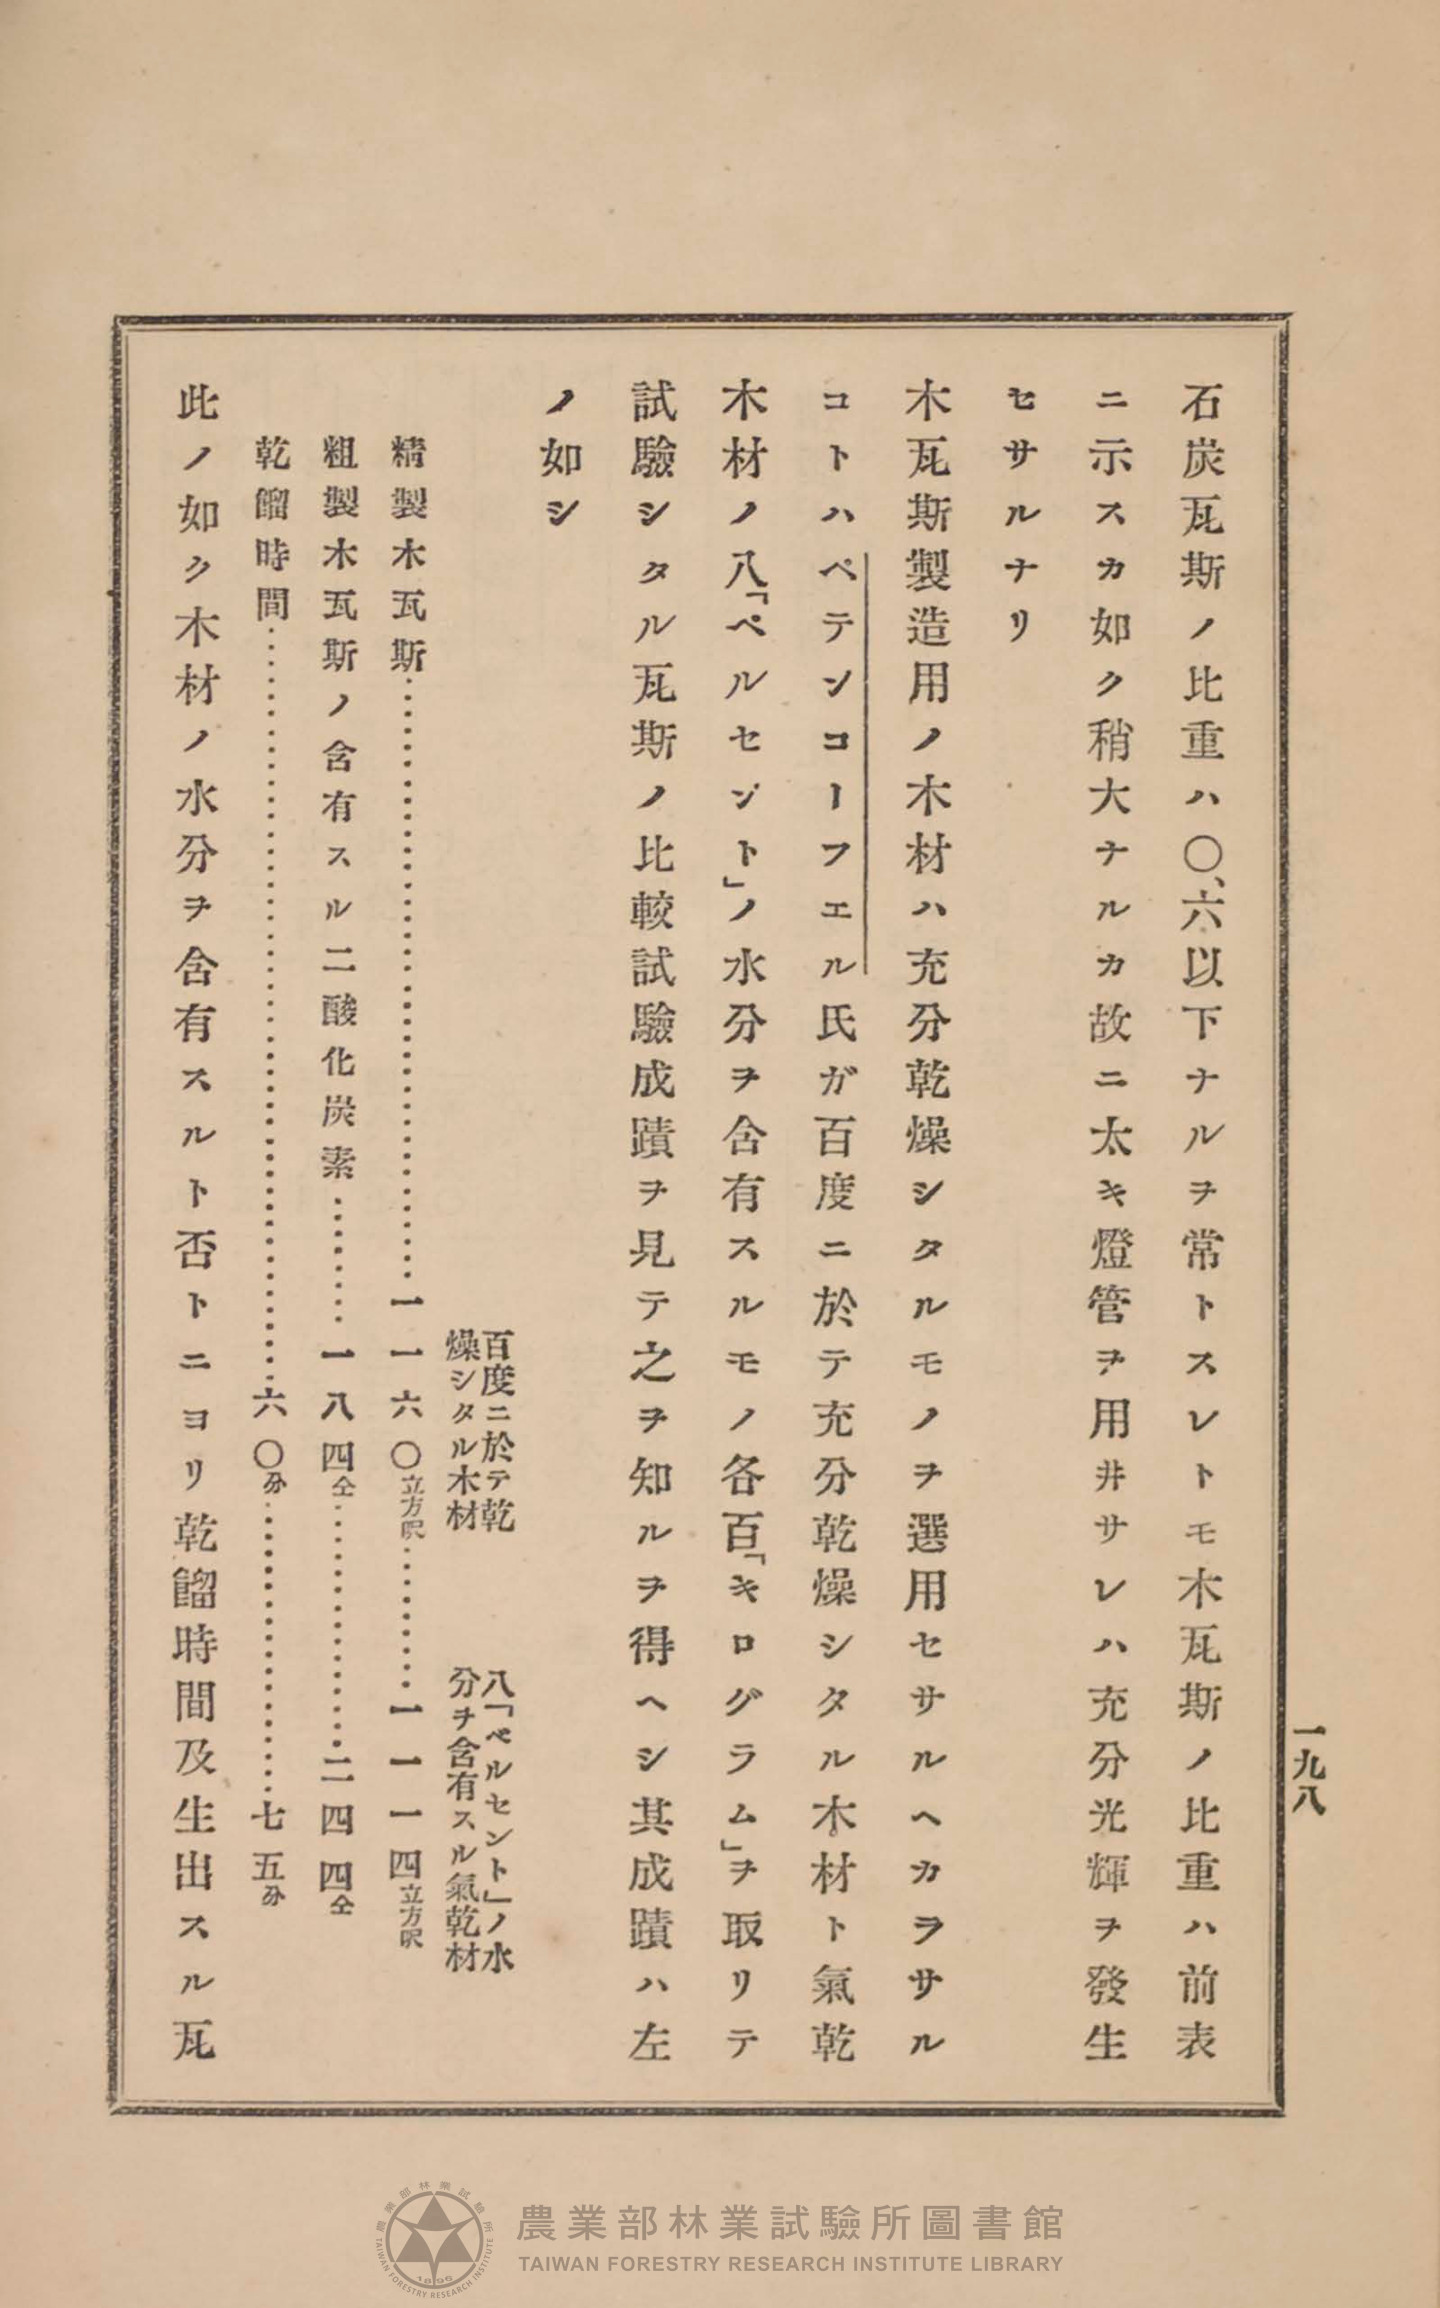 石炭瓦斯ノ比重ハ〇、六以下ナルヲ常トスレトモ木瓦斯ノ比重ハ前表
ニ示スカ如ク稍大ナルカ故ニ太キ燈管ヲ用井サレハ充分光輝ヲ發生
セサルナリ
木瓦斯製造用ノ木材ハ充分乾燥シタルモノヲ選用セサルヘカラサル
コトハペテンコーフエル氏ガ百度ニ於テ充分乾燥シタル木材ト氣乾
木材ノ八「ペルセント」ノ水分ヲ含有スルモノ各百「キログラム」ヲ取リテ
試驗シタル瓦斯ノ比較試驗成蹟ヲ見テ之ヲ知ルヲ得ヘシ其成蹟ハ左
ノ如シ
百度ニ於テ乾
燥シタル木材
八「ペルセント」ノ水
分ヲ含有スル氣乾材
精製木瓦斯……………………一一六〇立方呎…………一一一四立方呎
粗製木瓦斯ノ含有スル二酸化炭素………一八四仝…………二四四仝
乾餾時間……………………六〇分…………七五分
此ノ如ク木材ノ水分ヲ含有スルト否トニヨリ乾餾時間及生出スル瓦
一九八
農業部林業試驗所圖書館
TAIWAN FORESTRY RESEARCH INSTITUTE LIBRARY
農業部林業試驗所
TAIWAN FORESTRY RESEARCH INSTITUTE
1896